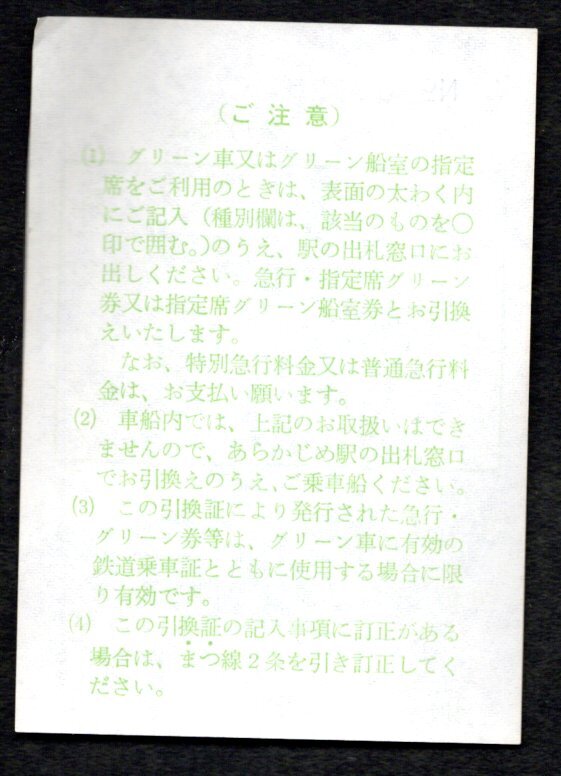 (ご注意)
(1) グリーン車又はグリーン船室の指定
席をご利用のときは、表面の太わく内
にご記入(種別欄は、該当のものを○
印で囲む。)のうえ、駅の出札窓口にお
出しください。急行・指定席グリーン
券又は指定席グリーン船室券とお引換
えいたします。
なお、特別急行料金又は普通急行料
金は、お支払い願います。
(2) 車船内では、上記のお取扱いはでき
ませんので、あらかじめ駅の出札窓口
でお引換えのうえ、ご乗車船ください。
(3) この引換証により発行された急行・
グリーン券等は、グリーン車に有効の
鉄道乗車証とともに使用する場合に限
り有効です。
(4) この引換証の記入事項に訂正がある
場合は、まつ線2条を引き訂正してく
ださい。